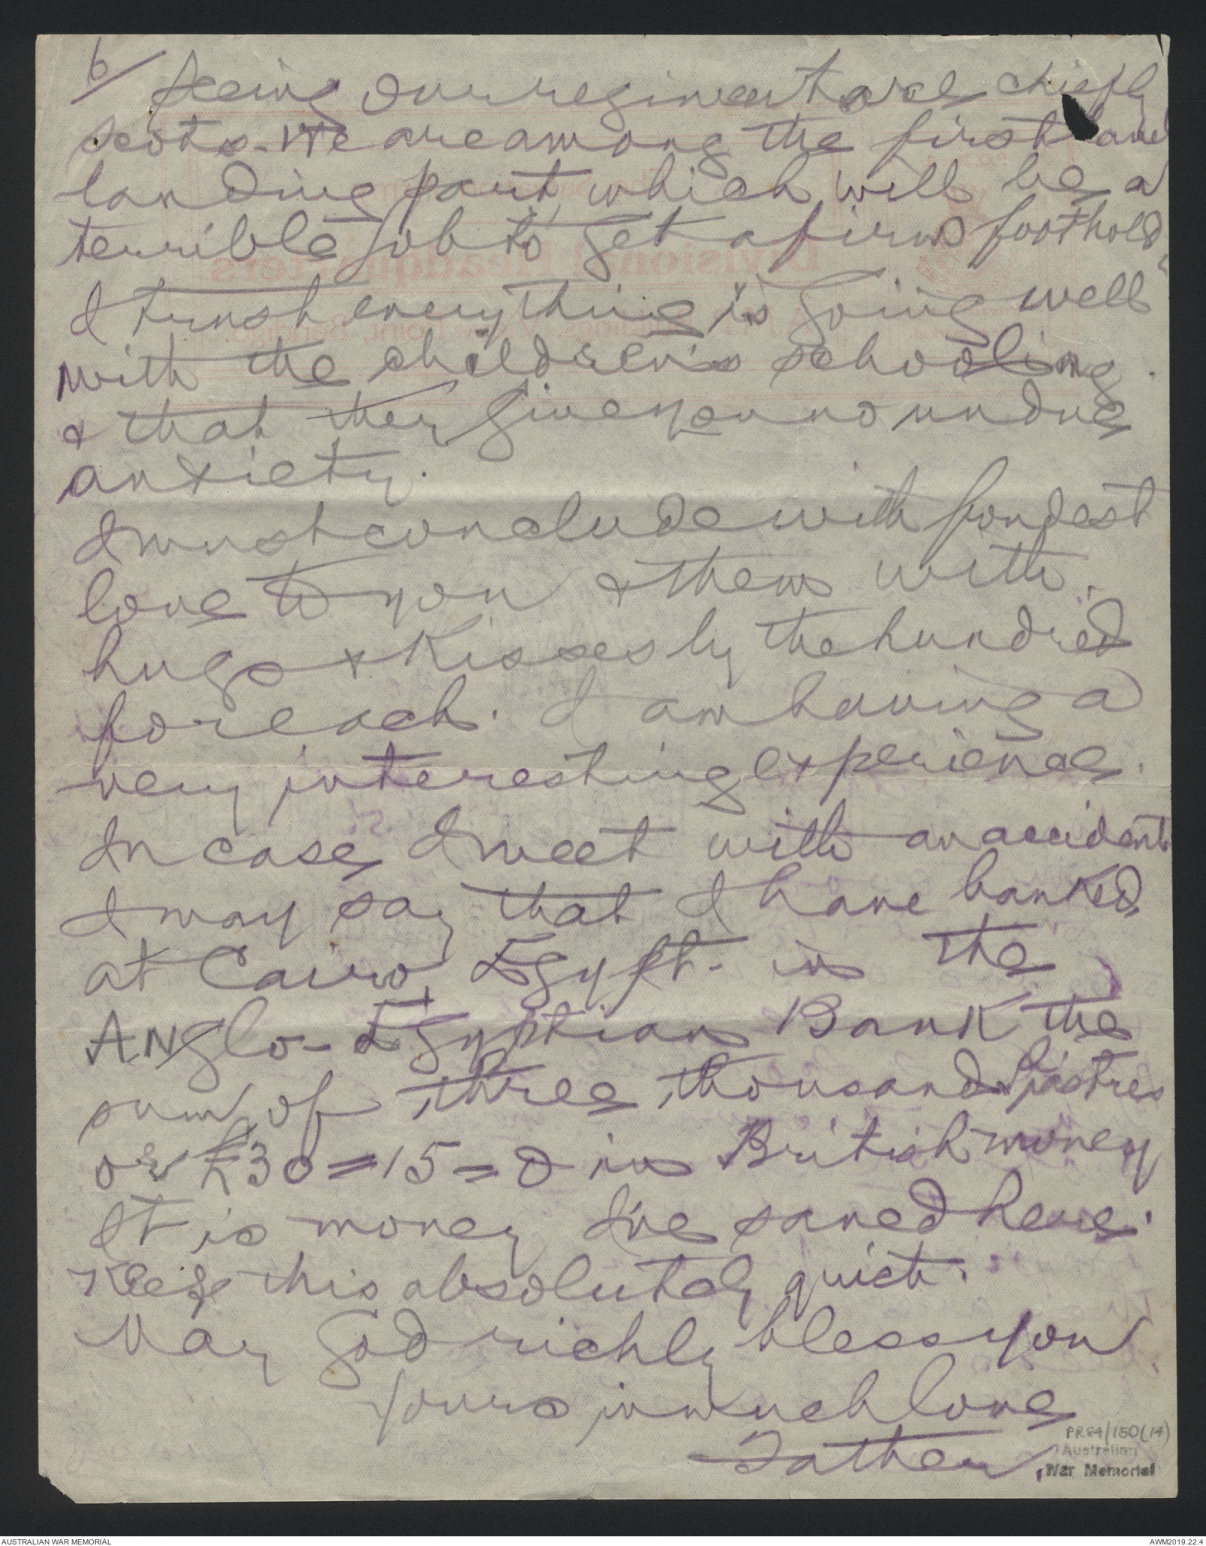 6/ seeing our regiment are chiefly
scots - We are among the first land
landing part, which will be a
terrible job to get a firm foothold
I trust everything is going well
with the children's schooling.
& that they give you no undue
anxiety.
I must conclude with fondest
love to you & them with.
hugs & Kisses by the hundred
for each. I am having a
very interesting experience.
In case I meet with an accident
I may say that I have banked
at Cairo, Egypt - in the
ANglo - Egyptian Bank the
sum of three thousand Piastres
or £30=15=0 in British money
It is money I've saved here.
Keep this absolutely quiet.
May God richly bless you
Yours in much love
Father
PR84/150(14)
Australian
War Memorial
Divisional Headquarters
AUSTRALIAN WAR MEMORIAL
AWM2019.22.4